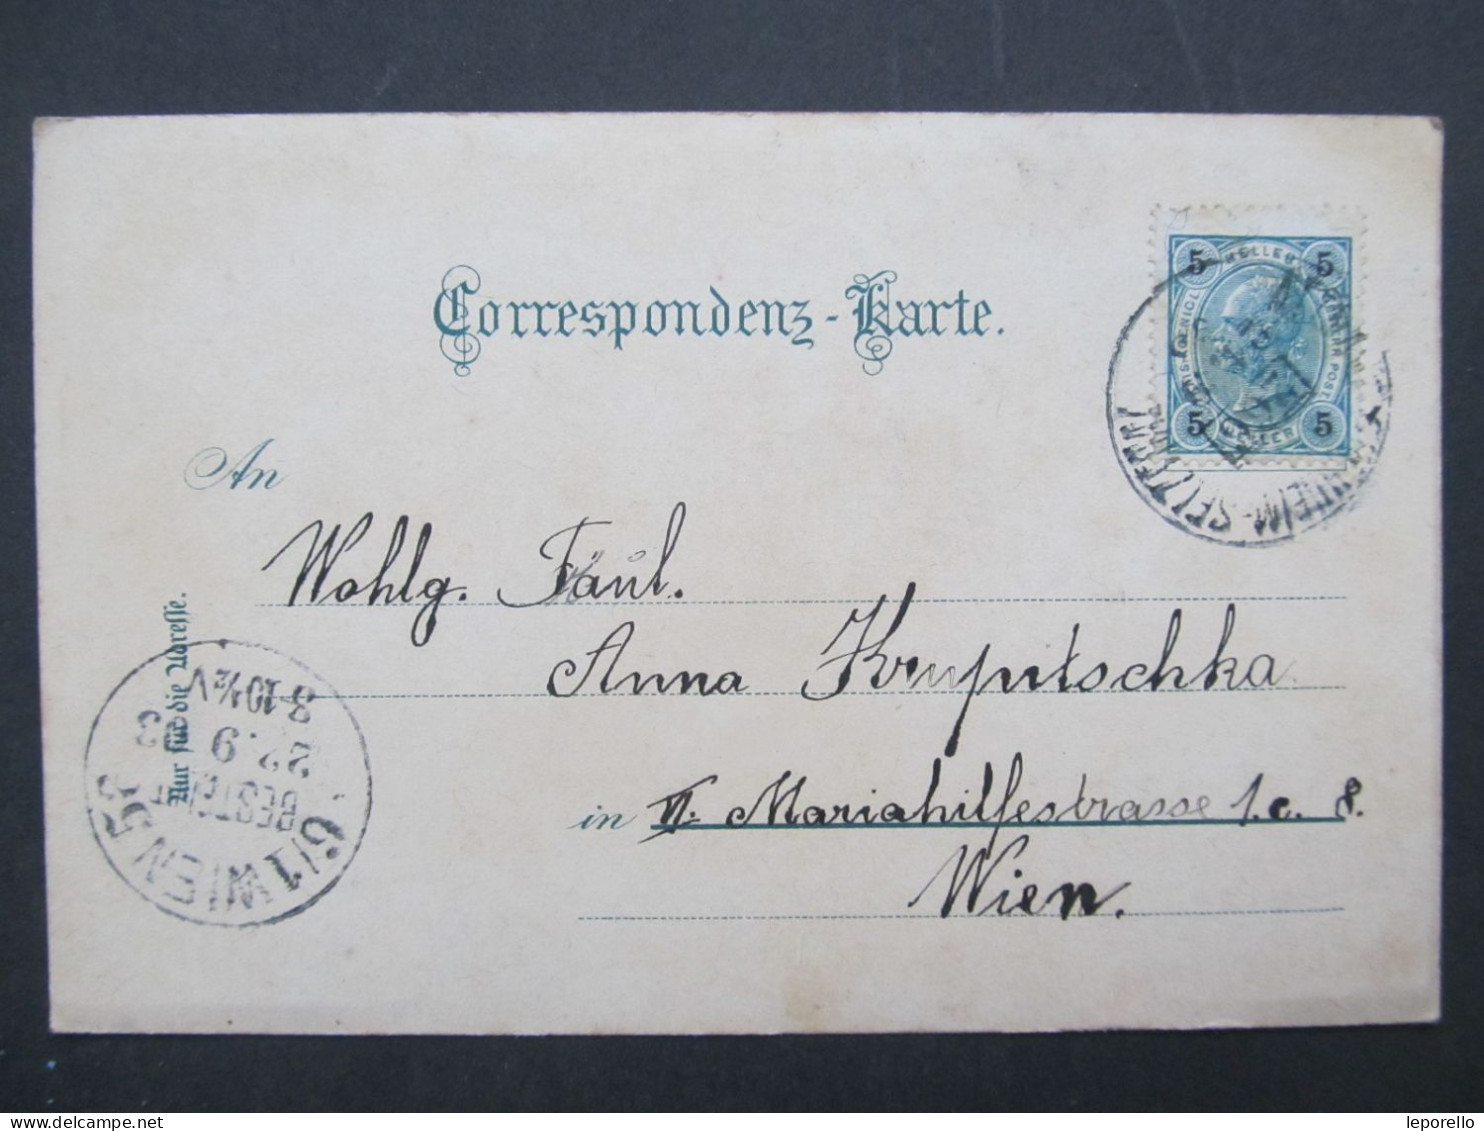 Correspondenz-Karte.
5 HELLER 5
5 HELLER 5
SELZTHAL
An
Wohlg. Fäul.
Anna Kruputschka
in VI. Mariahilfestrasse 1.c. 8.
Wien.
Nur für die Adresse.
6/1 WIEN 52
BESTELLT
22.9 03
3-10½V
leporello